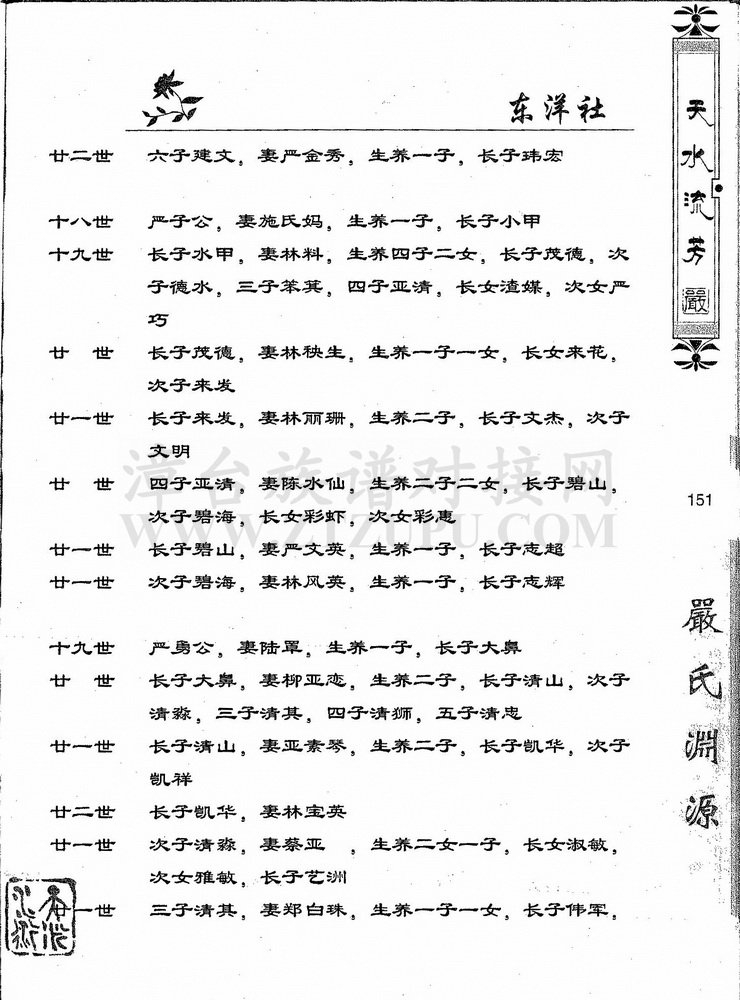 东洋社
廿二世 六子建文，妻严金秀，生养一子，长子玮宏
十八世 严子公，妻施氏妈，生养一子，长子小甲
十九世 长子水甲，妻林料，生养四子二女，长子茂德，次
子德水，三子笨箕，四子亚清，长女渣媒，次女严
巧
廿世 长子茂德，妻林秧生，生养一子一女，长女来花，
次子来发
廿一世 长子来发，妻林丽珊，生养二子，长子文杰，次子
文明
廿世 四子亚清，妻陈水仙，生养二子二女，长子碧山，
次子碧海，长女彩虾，次女彩惠
廿一世 长子碧山，妻严文英，生养一子，长子志超
廿一世 次子碧海，妻林风英，生养一子，长子志辉
十九世 严勇公，妻陆罩，生养一子，长子大鼻
廿世 长子大鼻，妻柳亚恋，生养二子，长子清山，次子
清淼，三子清其，四子清狮，五子清忠
廿一世 长子清山，妻亚素琴，生养二子，长子凯华，次子
凯祥
廿二世 长子凯华，妻林宝英
廿一世 次子清淼，妻蔡亚　，生养二女一子，长女淑敏，
次女雅敏，长子艺洲
廿一世 三子清其，妻郑白珠，生养一子一女，长子伟军，
天水流芳
嚴
151
嚴氏淵源
漳台族谱对接网
WWW.ZTZUPU.COM